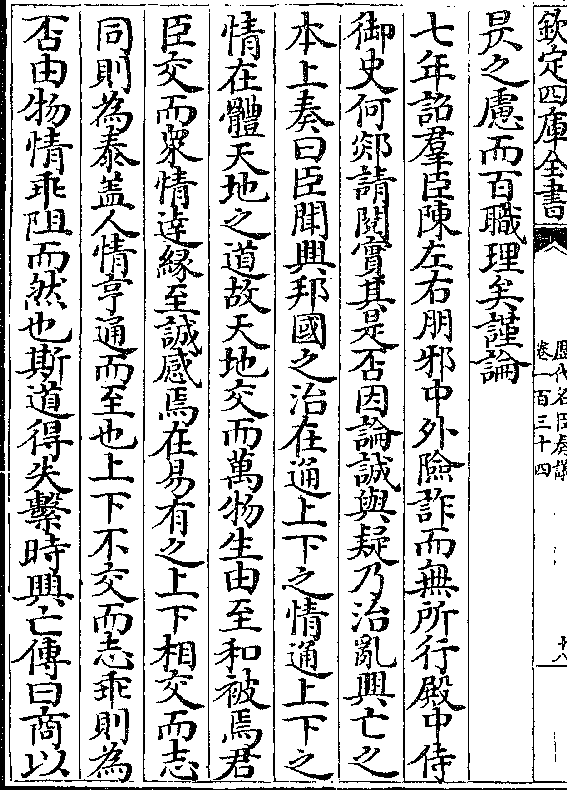 欽定四庫全書
歷代名臣奏議
卷一百三十四
十八
旻之慮而百職理矣謹論
七年詔羣臣陳左右朋邪中外險詐而無所行殿中侍
御史何郯請閱實其是否因論誠與疑乃治亂興亡之
本上奏曰臣聞興邦國之治在通上下之情通上下之
情在體天地之道故天地交而萬物生由至和被焉君
臣交而衆情達緣至誠感焉在易有之上下相交而志
同則為泰盖人情亨通而至也上下不交而志乖則為
否由物情乖阻而然也斯道得失繫時興亡傳曰商以